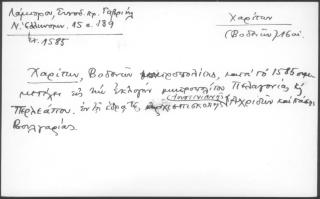 Λάμπρου, Συνοδ. πρ. Γαβριήλ
Ν. Ἑλληνομν. 15 σ. 139
ἔτ. 1585
Χαρίτων
(Βοδενῶν) 16 αἰ.
Χαρίτων, Βοδενῶν μητροπολίτης, κατὰ τὸ 1585 συμ
μετέχει εἰς τὴν ἐκλογὴν μητροπολίτου Πελαγονίας κ
Περλεάπου. ἐν τῇ ἕδρᾳ τῆς ἀρχιεπισκοπῆς (Ἰουστινιανῆς) Ἀχριδῶν καὶ πάσης
Βουλγαρίας.